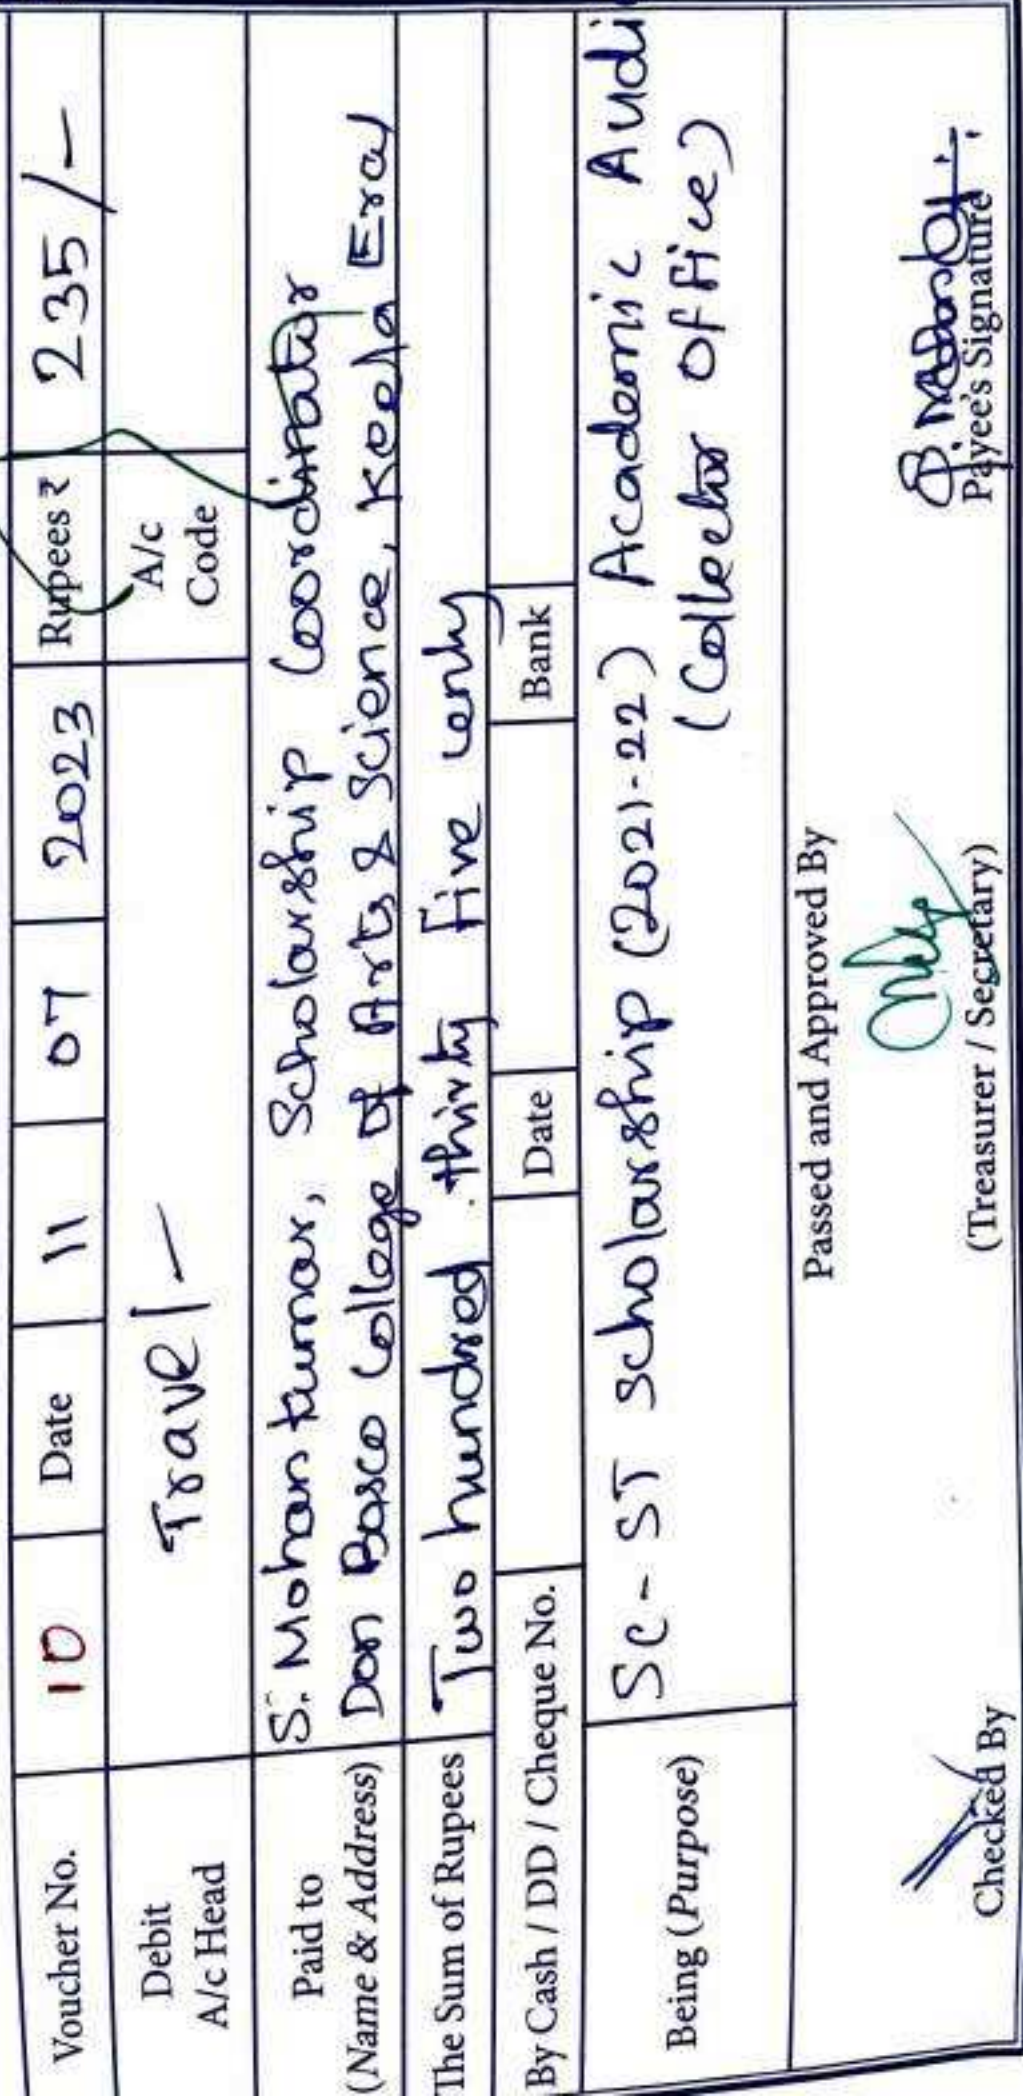 Voucher No. 10 Date 11 07 2023 Rupees ₹ 235/-
Debit A/c Head Travel- A/c Code
Paid to (Name & Address) S. Mohan kumar, Scholarship Coordinator
Don Bosco College of Arts & Science, Keela Eral
The Sum of Rupees Two hundred thirty five only
By Cash / DD / Cheque No. Date Bank
Being (Purpose) SC-ST Scholarship (2021-22) Academic Audi
(Collector office)
Passed and Approved By
Checked By (Treasurer / Secretary) Payee's Signature